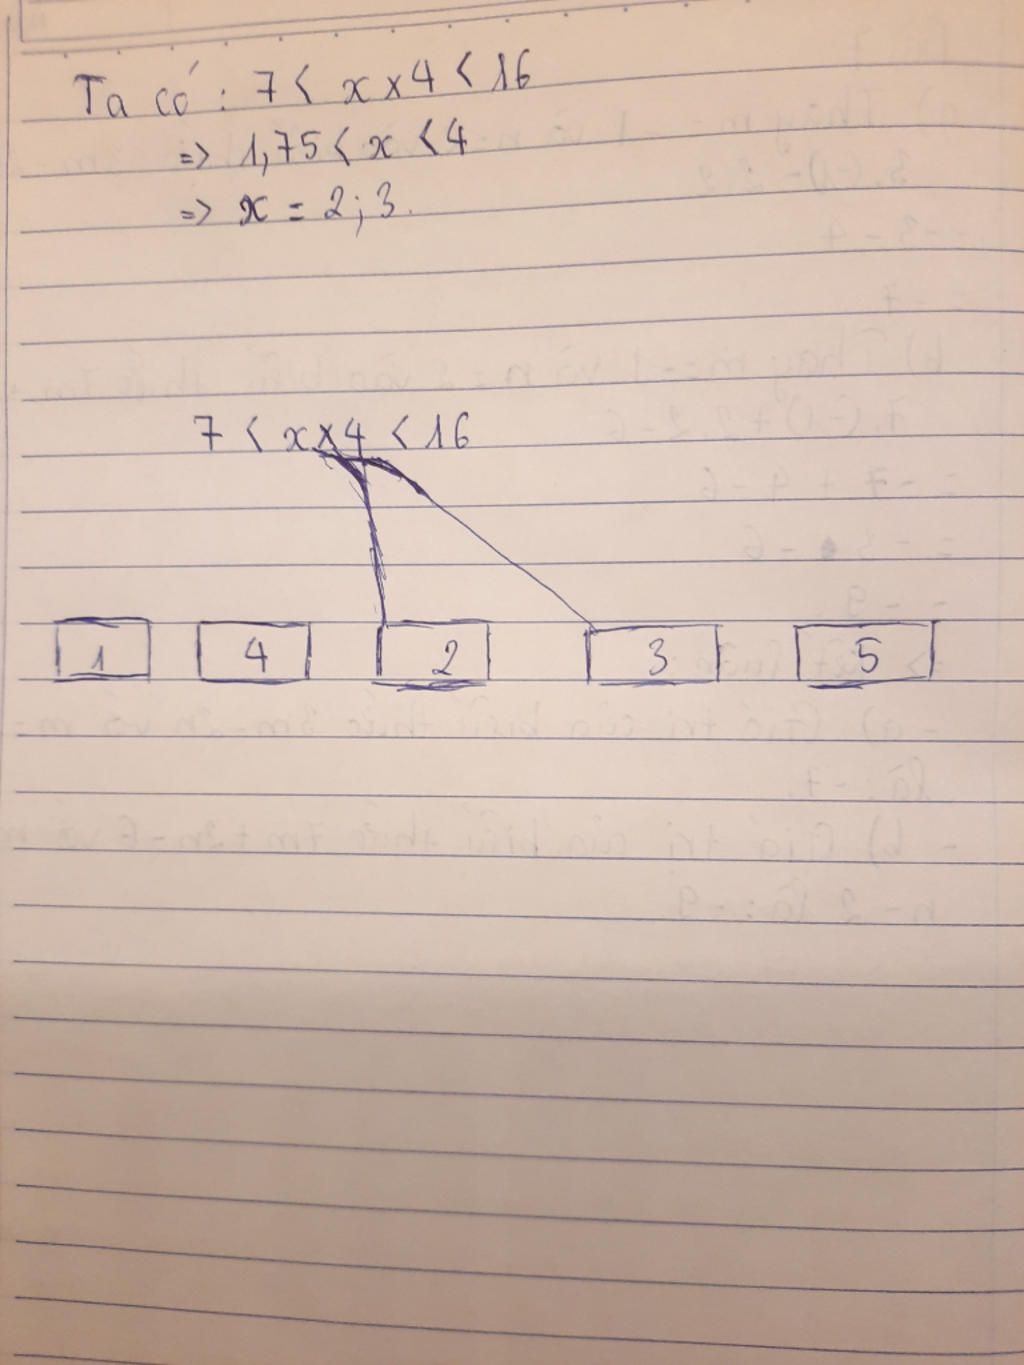 Ta có: 7 < x x 4 < 16
=> 1,75 < x < 4
=> x = 2; 3.
7 < x x 4 < 16
1 4 2 3 5